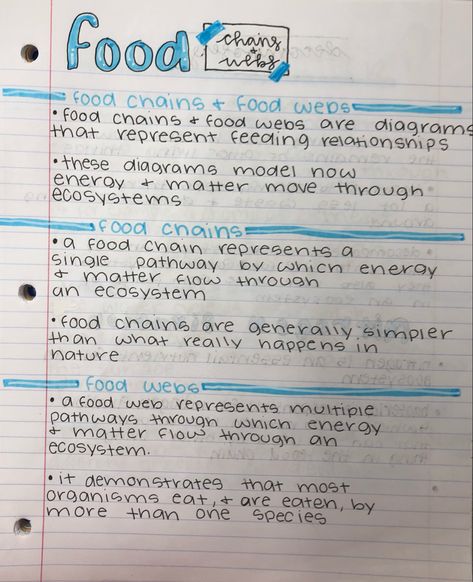 food
chains
+
webs
food chains + food webs
• food chains + food webs are diagrams
that represent feeding relationships
• these diagrams model how
energy + matter move through
ecosystems
food chains
• a food chain represents a
single pathway by which energy
+ matter flow through
an ecosystem
• food chains are generally simpler
than what really happens in
nature
food webs
• a food web represents multiple
pathways through which energy
+ matter flow through an
ecosystem.
• it demonstrates that most
organisms eat, + are eaten, by
more than one species